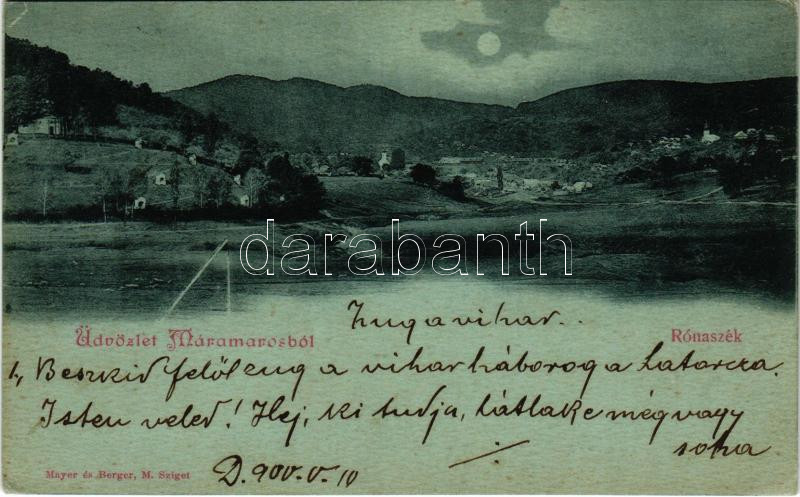 darabanth
Zug a vihar..
Üdvözlet Máramarosból
Rónaszék
1, Beszkid felől zug a vihar háborog a hatarcza.
Isten veled! Hej, ki tudja, látlak e még vagy
soha
Mayer és Berger, M. Sziget
D. 900.V.10